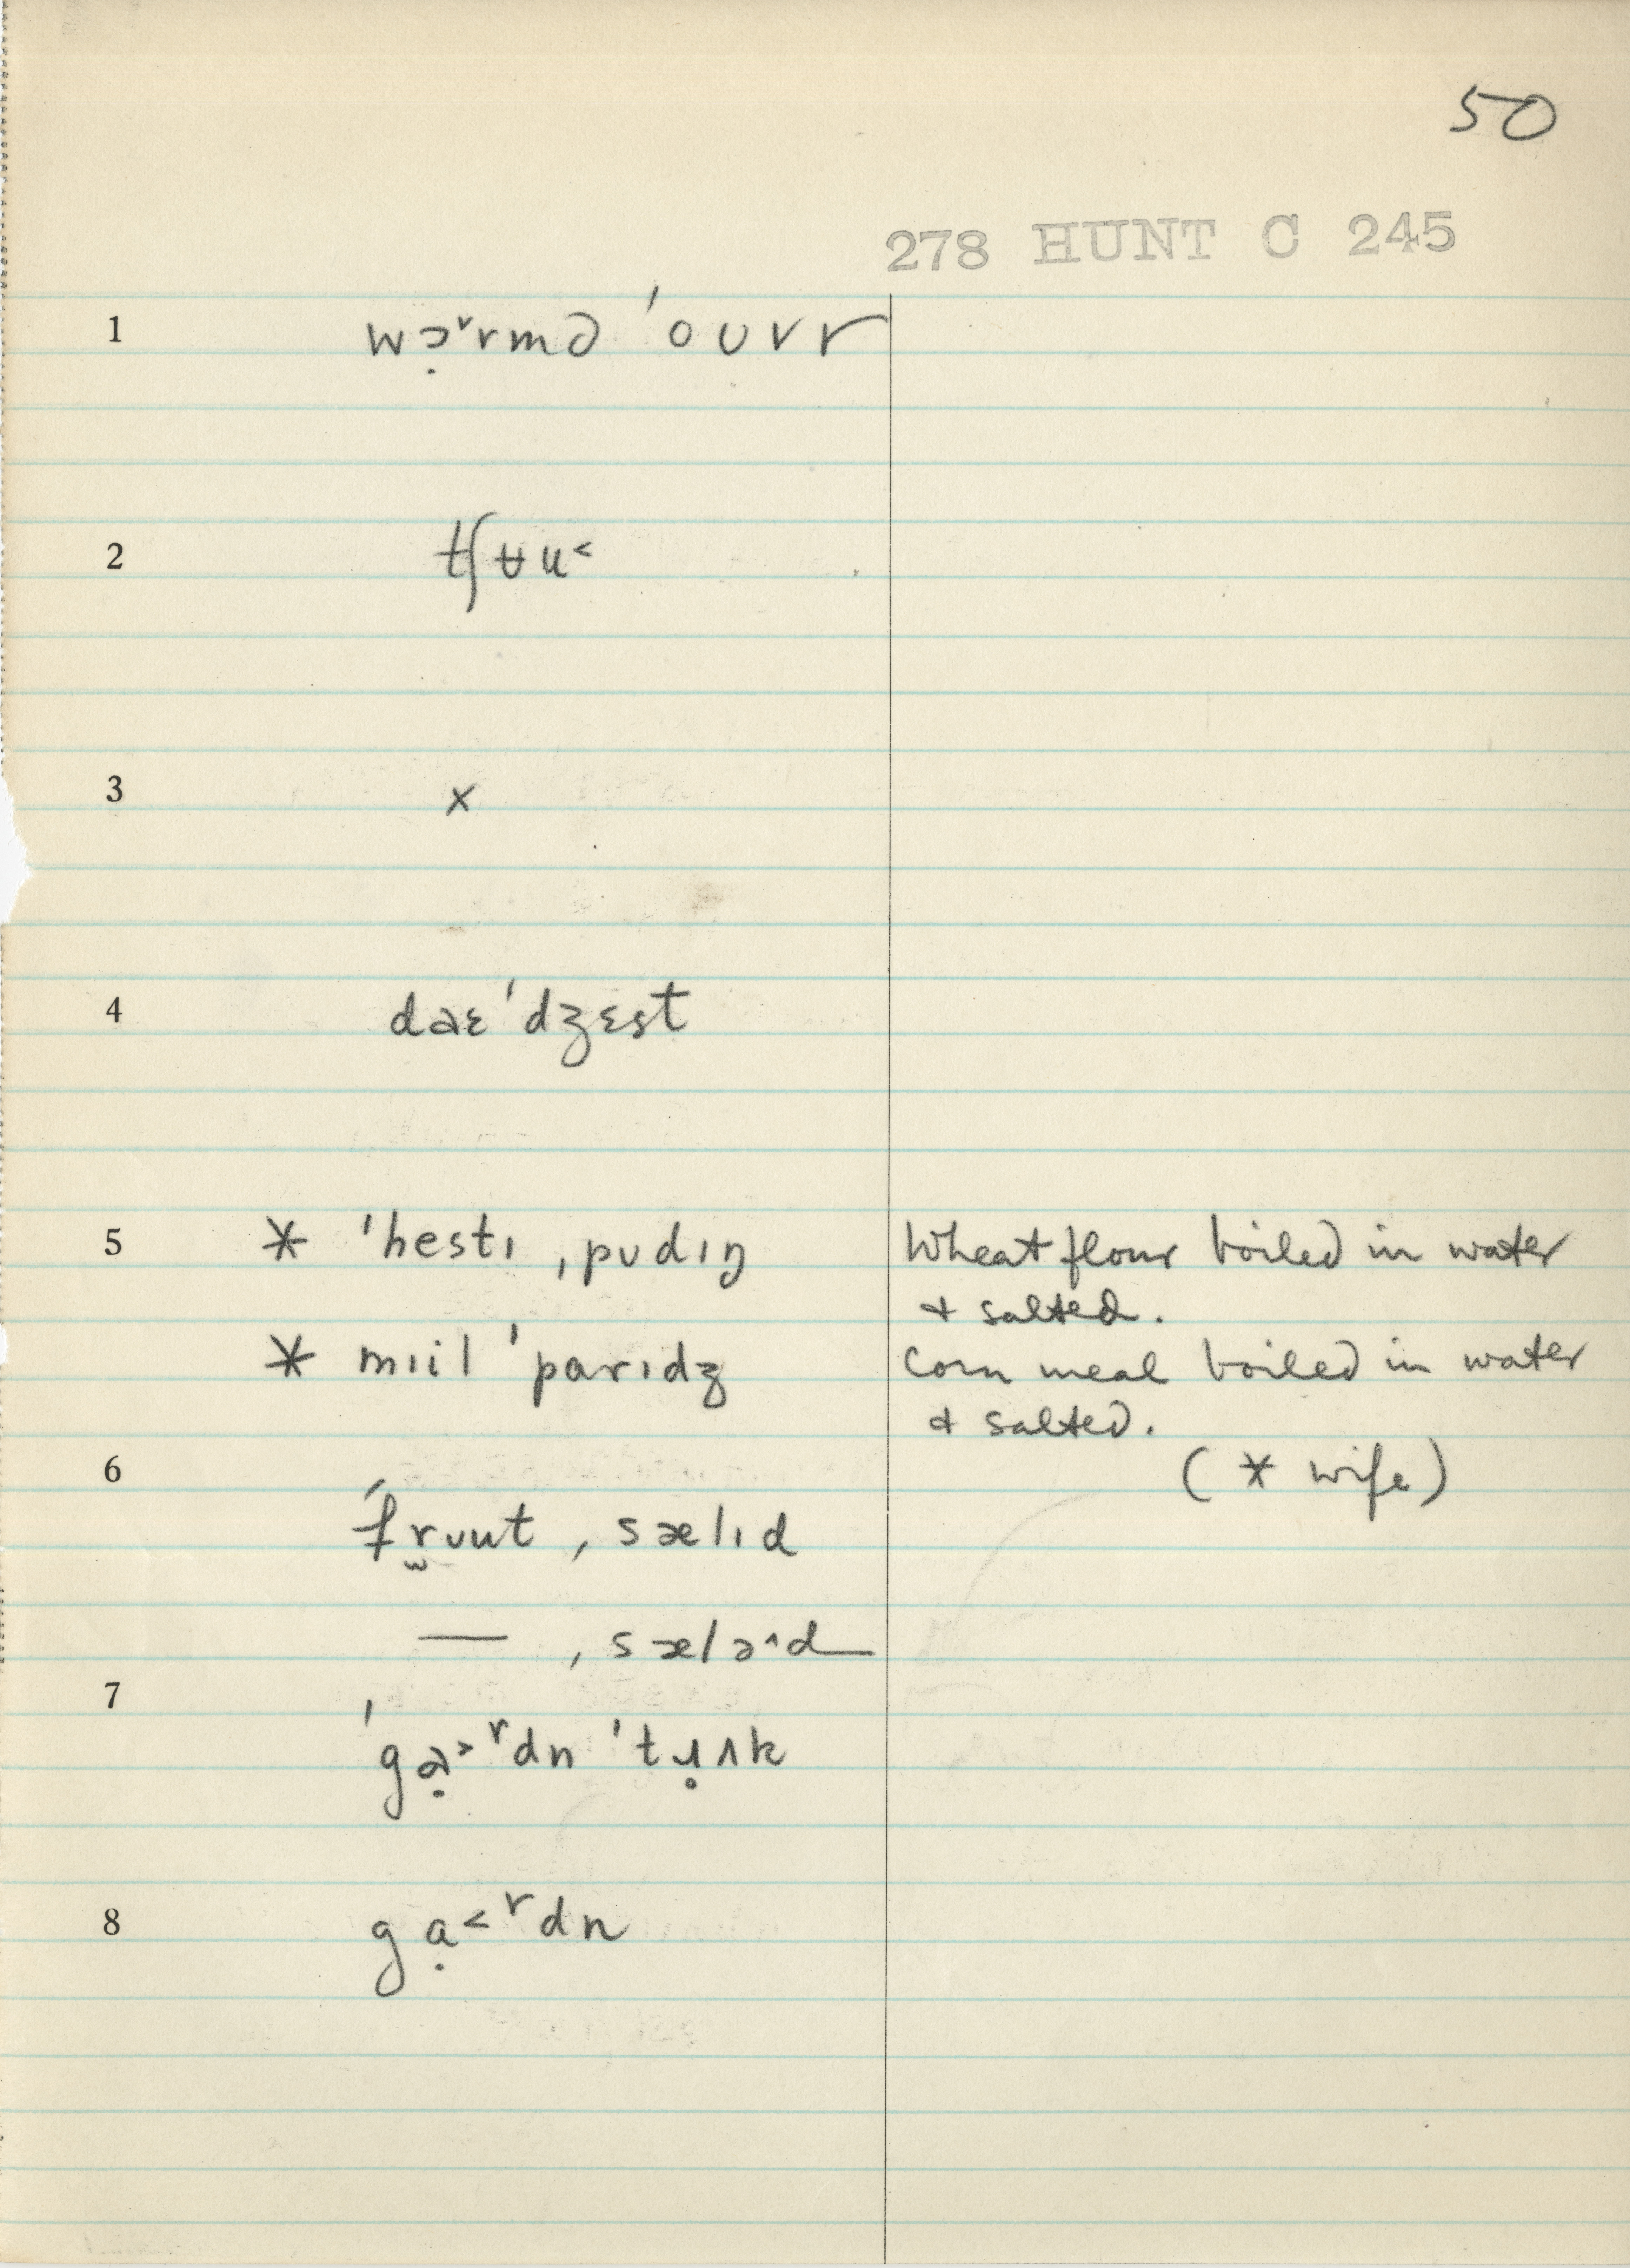 50
278 HUNT C 245
1 wɔ̣ᵛrmd ˈoʊvr
2 tʃʉu˂
3 x
4 daɛˈdʒɛst
5 * ˈhestɪ ˌpʊdɪŋ Wheat flour boiled in water
& salted.
* mɪil ˈparɪdʒ Corn meal boiled in water
& salted.
6 (* wife)
ˈfr̬ʊut ˌsælɪd
— ˌsælə˄d
7
ˈgạ˃ʳdn ˈtɹ̥ʌk
8 gạ˂ʳdn